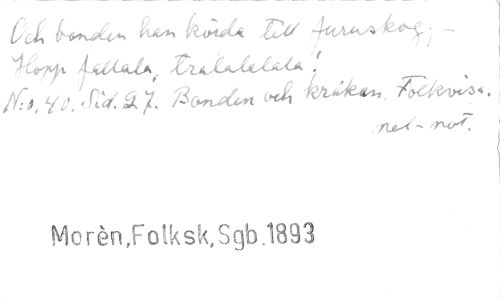 Och bonden han körda till furuskog; -
Hopp fallala, tralalalala!
N:o. 40. Sid. 27. Bonden och kråkan. Folkvisa.
mel-not.
Morèn,Folksk,Sgb.1893